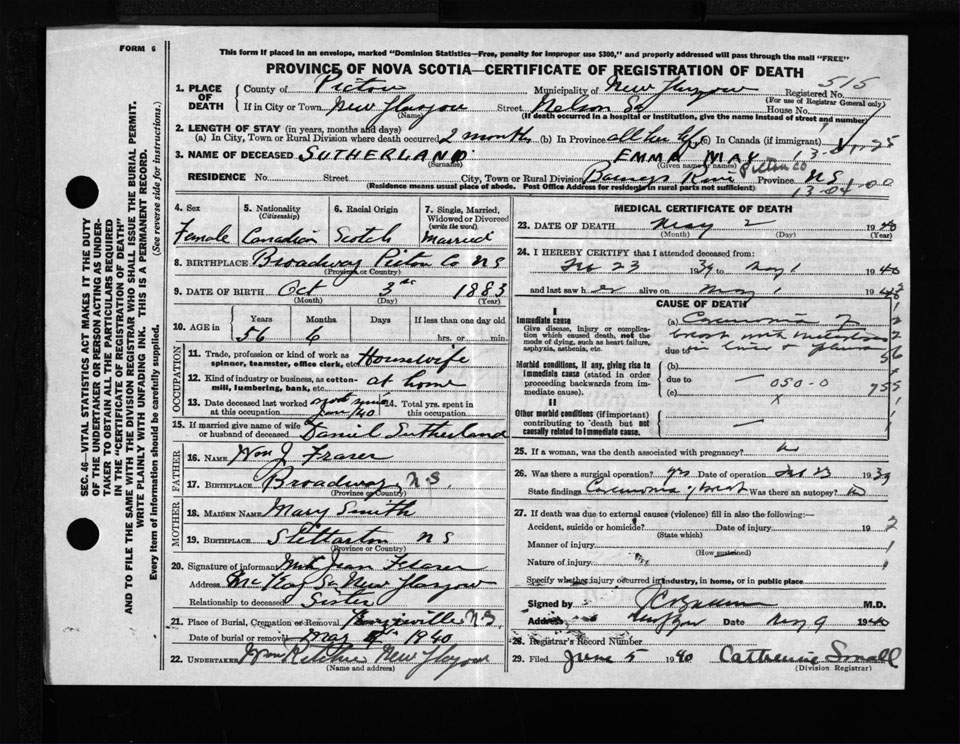 FORM 6
This form if placed in an envelope, marked "Dominion Statistics—Free, penalty for improper use $300," and properly addressed will pass through the mail "FREE"
PROVINCE OF NOVA SCOTIA—CERTIFICATE OF REGISTRATION OF DEATH
515
1. PLACE OF DEATH County of Pictou Municipality of New Glasgow Registered No.
(For use of Registrar General only)
If in City or Town New Glasgow Street Nelson St House No.
(Name) (If death occurred in a hospital or institution, give the name instead of street and number)
2. LENGTH OF STAY (in years, months and days)
(a) In City, Town or Rural Division where death occurred 2 months (b) In Province all her life (c) In Canada (if immigrant)
3. NAME OF DECEASED SUTHERLAND EMMA MAY
(Surname) (Given name or names)
RESIDENCE No. Street City, Town or Rural Division Barneys River Pictou Co Province N S
(Residence means usual place of abode. Post Office Address for residents in rural parts not sufficient)
13-04-00
4. Sex Female
5. Nationality (Citizenship) Canadian
6. Racial Origin Scotch
7. Single, Married, Widowed or Divorced (write the word) Married
8. BIRTHPLACE Broadway Pictou Co N S
(Province or Country)
9. DATE OF BIRTH Oct 3rd 1883
(Month) (Day) (Year)
10. AGE in Years Months Days If less than one day old
56 6 hrs. or min.
OCCUPATION
11. Trade, profession or kind of work as spinner, teamster, office clerk, etc. Housewife
12. Kind of industry or business, as cotton-mill, lumbering, bank, etc. at home
13. Date deceased last worked at this occupation Jan /40
14. Total yrs. spent in this occupation
15. If married give name of wife or husband of deceased Daniel Sutherland
FATHER
16. Name Wm J Fraser
17. Birthplace Broadway, N.S.
(Province or Country)
MOTHER
18. Maiden Name Mary Smith
19. Birthplace Stellarton N S
(Province or Country)
20. Signature of informant Jean Fraser
Address New Glasgow
Relationship to deceased Sister
21. Place of Burial, Cremation or Removal N.S.
Date of burial or removal May 1940
22. UNDERTAKER Wm Ritchie New Glasgow
(Name and address)
MEDICAL CERTIFICATE OF DEATH
23. DATE OF DEATH May 2 1940
(Month) (Day) (Year)
24. I HEREBY CERTIFY that I attended deceased from:
Feb 23 1939 to May 1 1940
and last saw her alive on May 1 19
CAUSE OF DEATH
I
Immediate cause
Give disease, injury or complication which caused death, not the mode of dying, such as heart failure, asphyxia, asthenia, etc.
(a) Carcinoma of
breast with metastases
due to in liver +
Morbid conditions, if any, giving rise to immediate cause (stated in order proceeding backwards from immediate cause).
(b)
due to 050-0
(c)
II
Other morbid conditions (if important) contributing to death but not causally related to immediate cause.
25. If a woman, was the death associated with pregnancy? No
26. Was there a surgical operation? Yes Date of operation Feb 23 1939
State findings Carcinoma of breast Was there an autopsy? No
27. If death was due to external causes (violence) fill in also the following:—
Accident, suicide or homicide? Date of injury 19
(State which)
Manner of injury
(How sustained)
Nature of injury
Specify whether injury occurred in industry, in home, or in public place
Signed by M.D.
Address Date May 9 1940
28. Registrar's Record Number
29. Filed June 5 1940 Catherine Small
(Division Registrar)
SEC. 46—VITAL STATISTICS ACT MAKES IT THE DUTY
OF THE UNDERTAKER OR PERSON ACTING AS UNDERTAKER TO OBTAIN ALL THE PARTICULARS REQUIRED
IN THE "CERTIFICATE OF REGISTRATION OF DEATH"
AND TO FILE THE SAME WITH THE DIVISION REGISTRAR WHO SHALL ISSUE THE BURIAL PERMIT.
WRITE PLAINLY WITH UNFADING INK. THIS IS A PERMANENT RECORD.
Every item of information should be carefully supplied. (See reverse side for instructions.)